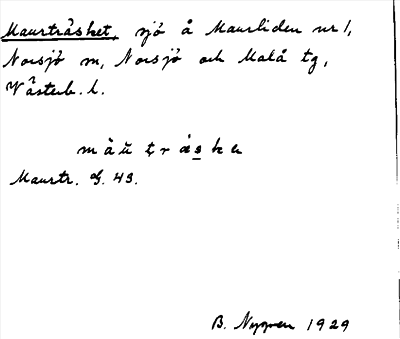 Maurträsket, sjö å Maurliden nr 1,
Norsjö sn, Norsjö och Malå tg,
Västerb. l.
m å ŭ t r ä s k ə
Maurtr. G. 43.
B. Nygren 1929